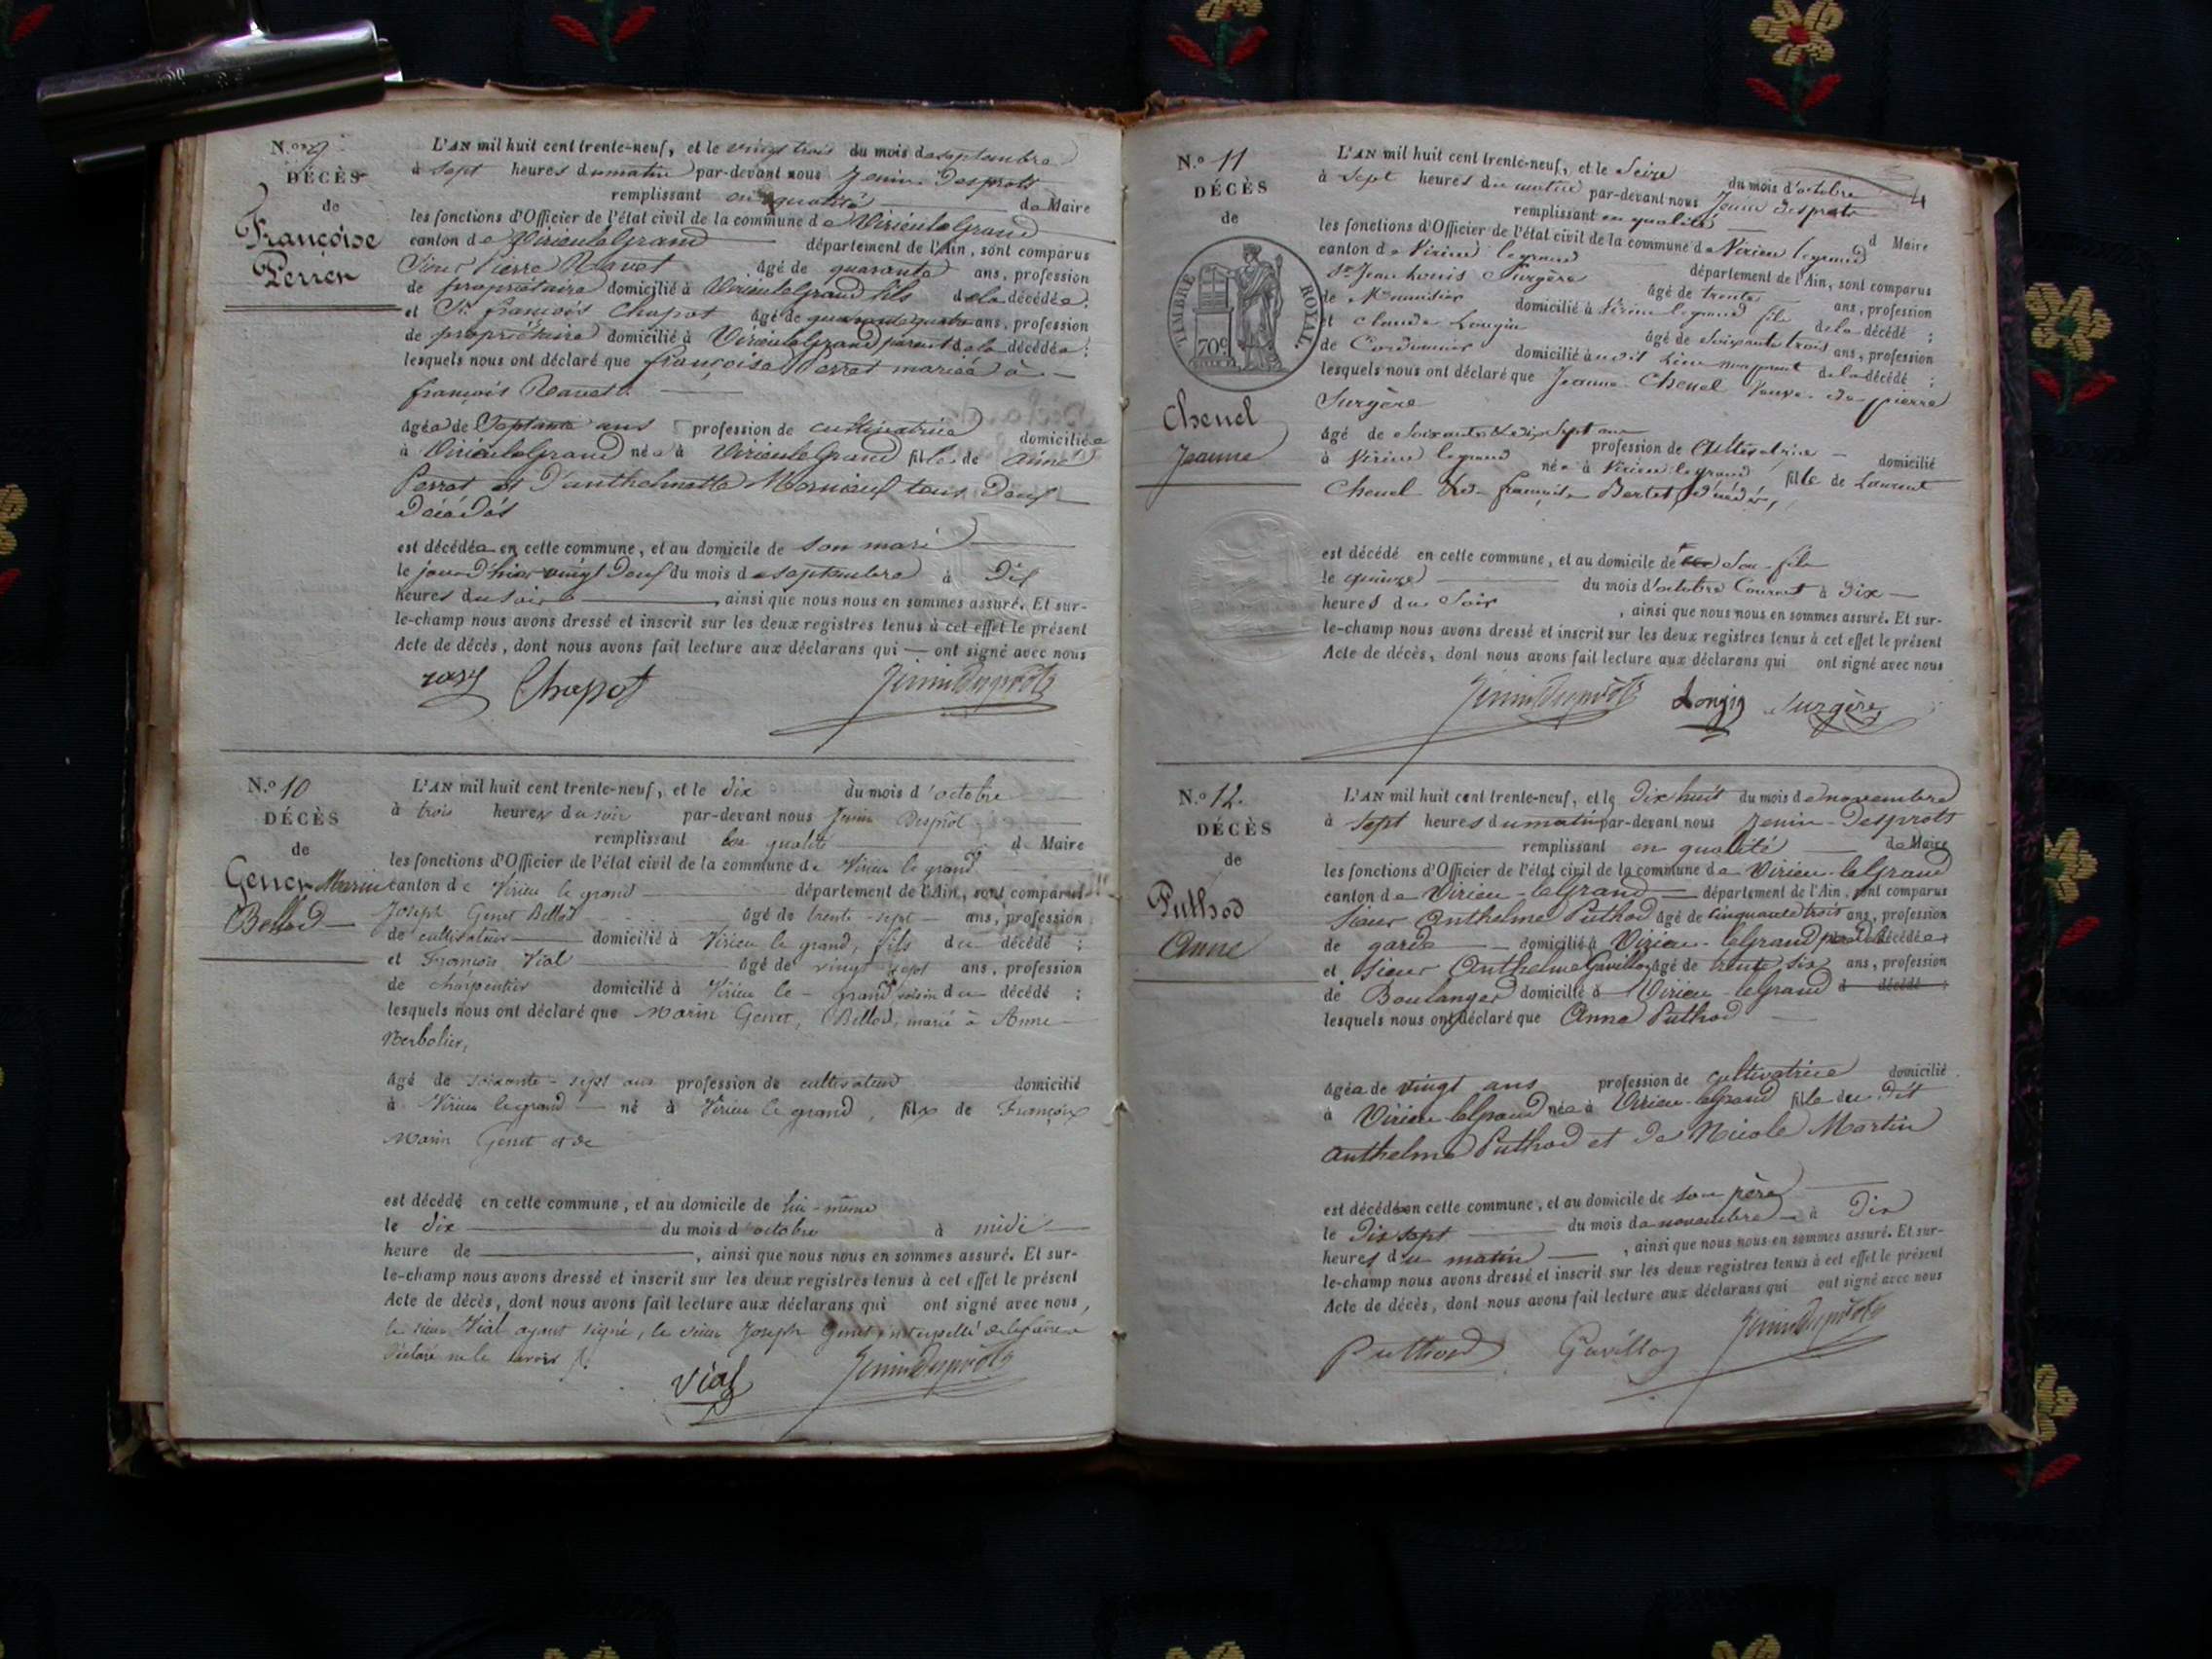 N.º 9
DÉCÈS
de
Françoise
Perren
L'AN mil huit cent trente-neuf, et le vingt trois du mois de septembre
à sept heures du matin par-devant nous Jenin Desprots
remplissant en qualité de Maire
les fonctions d'Officier de l'état civil de la commune de Virieu le Grand
canton de Virieu le Grand département de l'Ain, sont comparus
Sieur Pierre Ravet âgé de quarante ans, profession
de propriétaire domicilié à Virieu le Grand fils de la décédée;
et Sr. françois Chapot âgé de quarante quatre ans, profession
de propriétaire domicilié à Virieu le Grand parent de la décédée;
lesquels nous ont déclaré que françoise Perret mariée à
françois Ravet.
âgée de Septante ans profession de cultivatrice domiciliée
à Virieu le Grand née à Virieu le Grand fille de aimé
Perret et d'anthelmette tous deux
décédés
est décédée en cette commune, et au domicile de son mari
le jour d'hier vingt deux du mois de septembre à dix
heures du soir, ainsi que nous nous en sommes assuré. Et sur-
le-champ nous avons dressé et inscrit sur les deux registres tenus à cet effet le présent
Acte de décès, dont nous avons fait lecture aux déclarans qui — ont signé avec nous
Chapot Jenin Desprots
N.º 10
DÉCÈS
de
Genet Marin
Bellod
L'AN mil huit cent trente-neuf, et le dix du mois d'octobre
à trois heures du soir par-devant nous Jenin Desprot
remplissant en qualité d Maire
les fonctions d'Officier de l'état civil de la commune de Virieu le grand
canton de Virieu le grand département de l'Ain, sont comparus
Joseph Genet Bellod âgé de trente-sept ans, profession
de cultivateur domicilié à Virieu le grand, fils du décédé;
et François Vial âgé de vingt sept ans, profession
de charpentier domicilié à Virieu le-grand voisin du décédé;
lesquels nous ont déclaré que Marin Genet, Bellod, marié à Anne
Berbolier,
âgé de soixante-sept ans profession de cultivateur domicilié
à Virieu le grand né à Virieu le grand, fils de François
Marin Genet et de
est décédé en cette commune, et au domicile de lui-même
le dix du mois d'octobre à midi
heure de, ainsi que nous nous en sommes assuré. Et sur-
le-champ nous avons dressé et inscrit sur les deux registres tenus à cet effet le présent
Acte de décès, dont nous avons fait lecture aux déclarans qui ont signé avec nous,
le sieur Vial ayant signé, le sieur Joseph Genet interpellé de le faire a
déclaré ne le savoir
Vial Jenin Desprots
4
N.º 11
DÉCÈS
de
TIMBRE ROYAL.
70c
Chenel
Jeanne
L'AN mil huit cent trente-neuf, et le Seize du mois d'octobre
à sept heures du matin par-devant nous Jenin desprots
remplissant en qualité d Maire
les fonctions d'Officier de l'état civil de la commune de Virieu legrand
canton de Virieu legrand département de l'Ain, sont comparus
Sr. Jean Louis Surgère âgé de trente ans, profession
de Menuisier domicilié à Virieu legrand fils de la décédé;
et claude Longin âgé de Soixante trois ans, profession
de Cordonnier domicilié audit Lieu non parent de la décédé;
lesquels nous ont déclaré que Jeanne Chenel Veuve de pierre
Surgère
âgé de Soixante & dix Sept ans profession de Cultivatrice domicilié
à Virieu legrand née à Virieu legrand fille de Laurent
Chenel & de françoise Bertet décédés,
est décédé en cette commune, et au domicile de Son fils
le quinze du mois d'octobre Courant à dix
heures du Soir, ainsi que nous nous en sommes assuré. Et sur-
le-champ nous avons dressé et inscrit sur les deux registres tenus à cet effet le présent
Acte de décès, dont nous avons fait lecture aux déclarans qui ont signé avec nous
Jenin Desprots Longin Surgère
N.º 12.
DÉCÈS
de
Puthod
Anne
L'AN mil huit cent trente-neuf, et le Dix huit du mois de novembre
à Sept heures du matin par-devant nous Jenin-Desprots
remplissant en qualité de Maire
les fonctions d'Officier de l'état civil de la commune de Virieu-le Grand
canton de Virieu-le Grand département de l'Ain, sont comparus
Sieur Anthelme Puthod âgé de cinquante trois ans, profession
de garde domicilié à Virieu-le Grand père de la décédée;
et Sieur Anthelme Gavilloz âgé de trente six ans, profession
de Boulanger domicilié à Virieu-le Grand d décédé;
lesquels nous ont déclaré que Anne Puthod
âgée de vingt ans profession de cultivatrice domicilié
à Virieu-le Grand née à Virieu-le Grand fille du dit
Anthelme Puthod et de Nicole Martin
est décédée en cette commune, et au domicile de son père
le Dix sept du mois de novembre à Dix
heures du matin, ainsi que nous nous en sommes assuré. Et sur-
le-champ nous avons dressé et inscrit sur les deux registres tenus à cet effet le présent
Acte de décès, dont nous avons fait lecture aux déclarans qui ont signé avec nous
Puthod Gavilloz Jenin Desprots